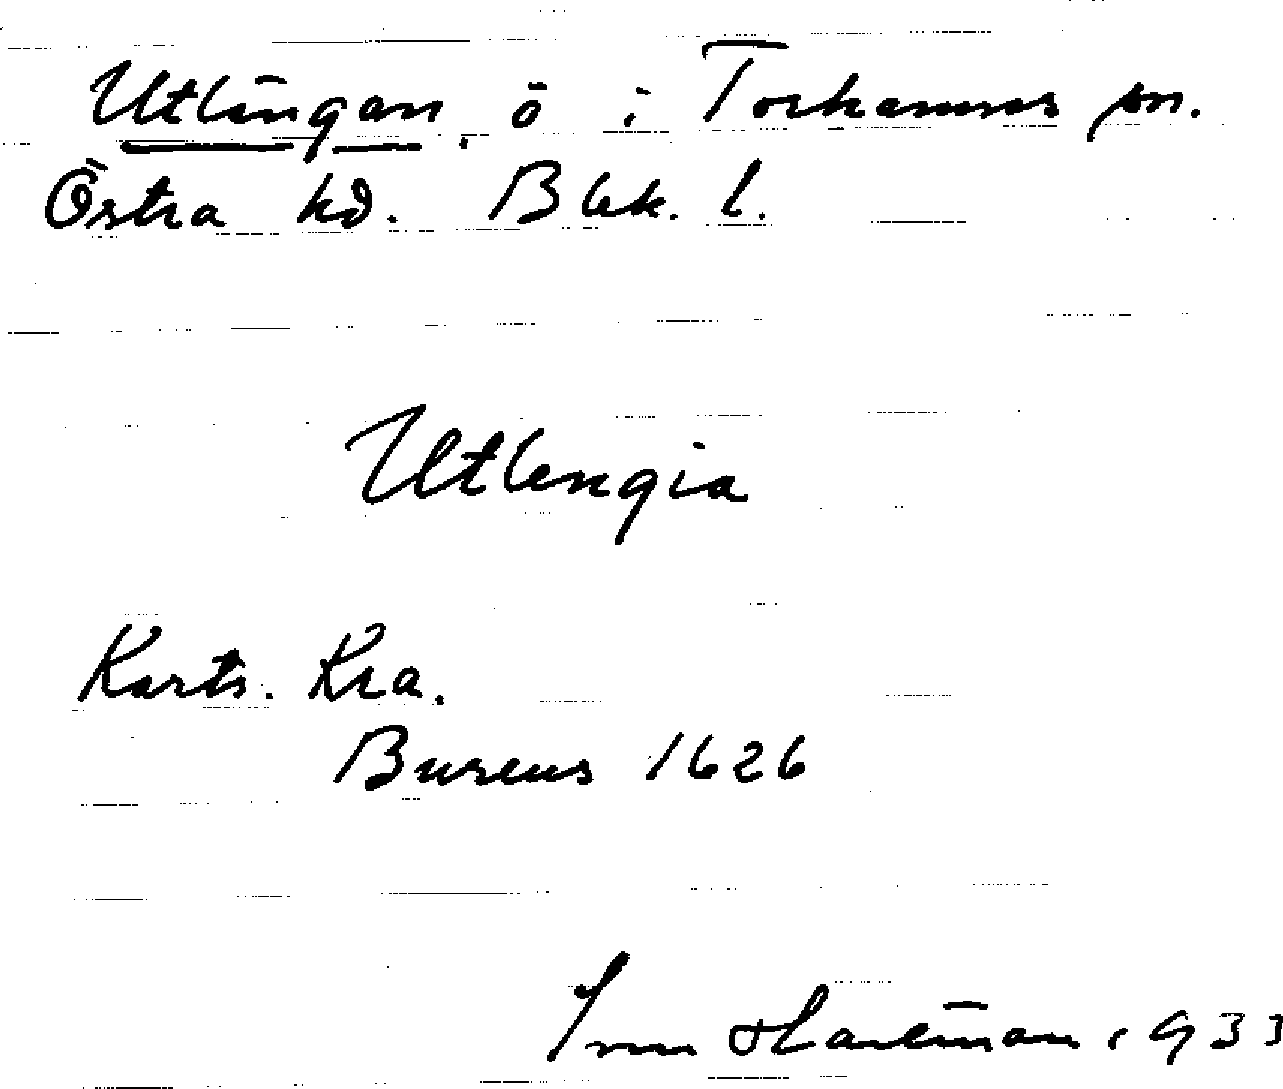 Utlängan, ö i Torhamns sn.
Östra hd. Blek. l.
Utlengia
Kartv. Kra.
Bureus 1626
Ivar Hartman 1933